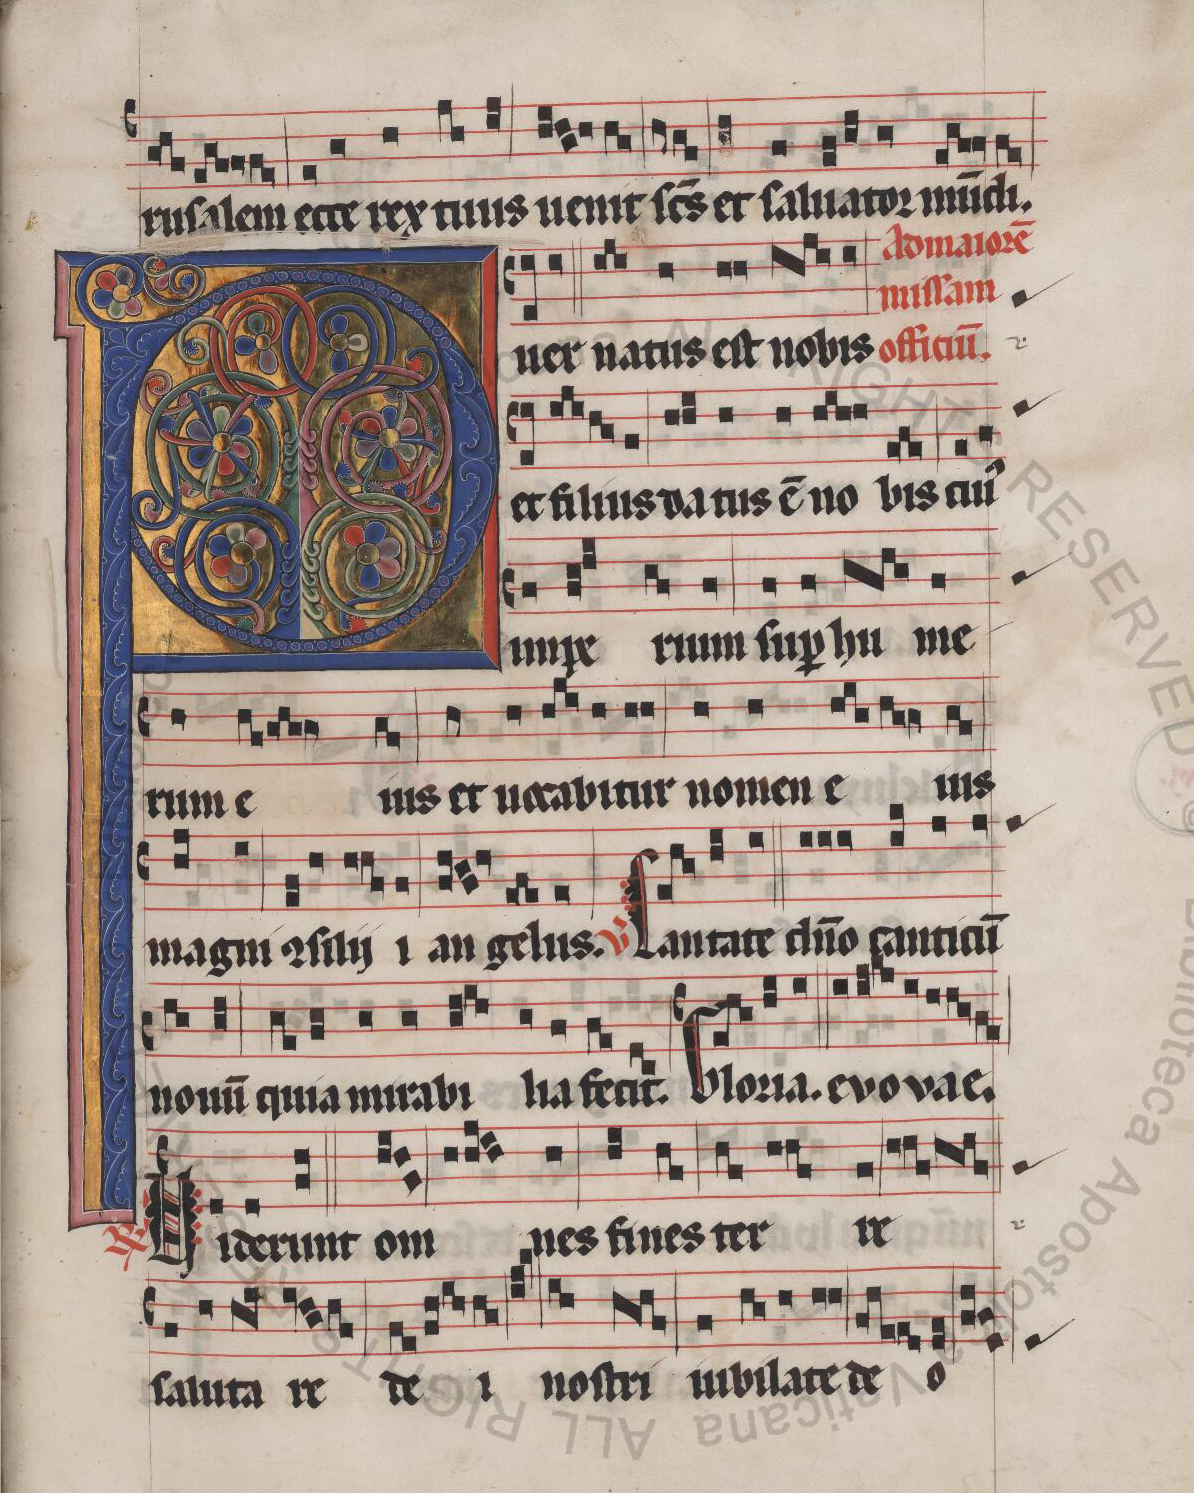 rusalem ecce rex tuus uenit sc̄s et saluator mūdi.
Ad maiorē
missam
P uer natus est nobis officiū.
et filius datus ē no bis cuiꝰ
impe rium sup hu me
rum e ius et uocabitur nomen e ius
magni ꝯsilij i an gelus. V Cantate dn̄o canticū
nouū quia mirabi lia fecit. Gloria. evovae.
R Viderunt om nes fines ter re
saluta re de i nostri iubilate de o